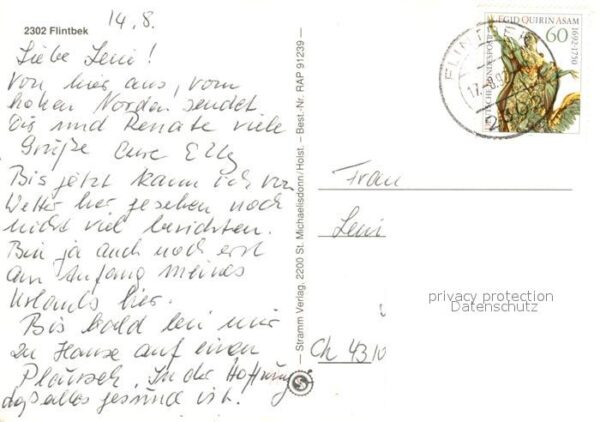 14.8.
2302 Flintbek
Liebe Leni!
Von hier aus, vom
hohen Norden sendet
Dir und Renate viele
Grüße Eure Elly
Bis jetzt kann ich vom
Wetter her gesehen noch
nicht viel berichten.
Bin ja auch noch erst
am Anfang meines
Urlaubs hier.
Bis bald bei mir
zu Hause auf einen
Plausch. In der Hoffnung
daß alles gesund ist!
Stramm Verlag, 2200 St. Michaelisdonn/Holst. – Best.-Nr. RAP 91239 –
EGID QUIRIN ASAM
60
1692-1750
DEUTSCHE BUNDESPOST
FLINTBEK
Frau
Leni
privacy protection
Datenschutz
Ch 4310